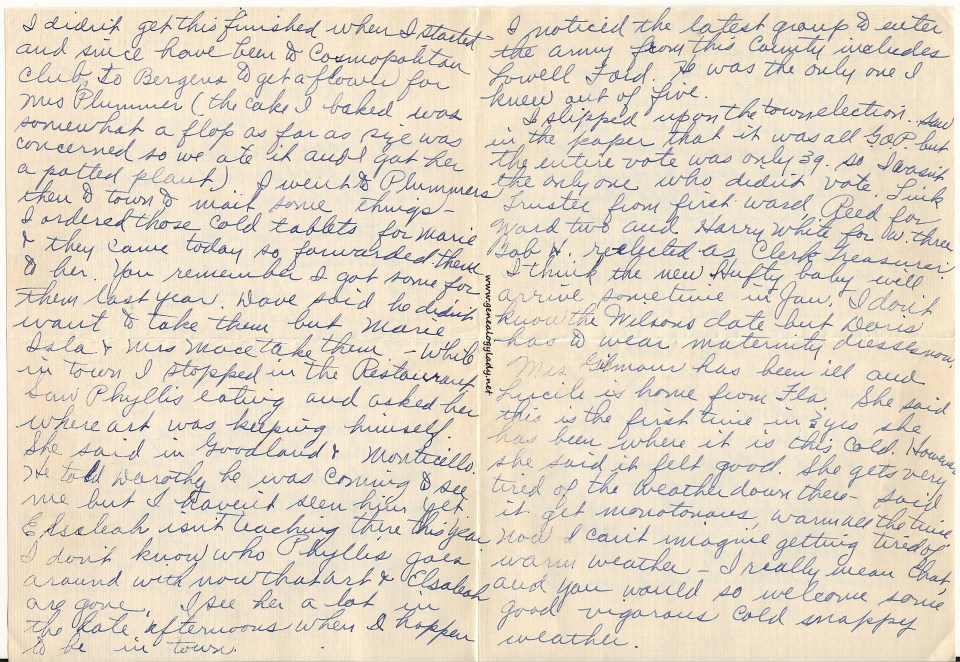 I didn't get this finished when I started
and since have been to Cosmopolitan
Club, to Bergens to get a flower for
Mrs Plummer (the cake I baked was
somewhat a flop as far as size was
concerned so we ate it and I got her
a potted plant) I went to Plummers
then to town to mail some things -
I ordered those cold tablets for Marie
& they came today so forwarded them
to her. You remember I got some for
them last year. Dave said he didn't
want to take them but Marie
Isla & Mrs Mace take them. - While
in town I stopped in the Restaurant
Saw Phyllis eating and asked her
where art was keeping himself.
She said in Goodland & Monticello.
He told Dorothy he was coming to see
me but I haven't seen him yet
Elsaleah isn't teaching there this year
I don't know who Phyllis goes
around with now that art & Elsaleah
are gone. I see her a lot in
the late afternoons when I happen
to be in town.
I noticed the latest group to enter
the army from this County includes
Lowell Ford. He was the only one I
knew out of five.
I slipped up on the town election. Saw
in the paper that it was all G.O.P. but
the entire vote was only 39. so I wasn't
the only one who didn't vote. Link
Trustee from first ward, Reed for
Ward two and Harry White for w. three
Bob H. reelected as Clerk Treasurer.
I think the new Hufty baby will
arrive sometime in Jan. I don't
know the Wilsons date but Doris
has to wear maternity dresses now.
Mrs Gilman has been ill and
Lucile is home from Fla. She said
this is the first time in 3 yrs she
has been where it is this cold. However
she said it felt good. She gets very
tired of the weather down there - said
it get monotonous, warm all the time
Now I can't imagine getting tired of
warm weather - I really mean that,
and you would so welcome some
good vigorous cold snappy
weather.
www.genealogylady.net